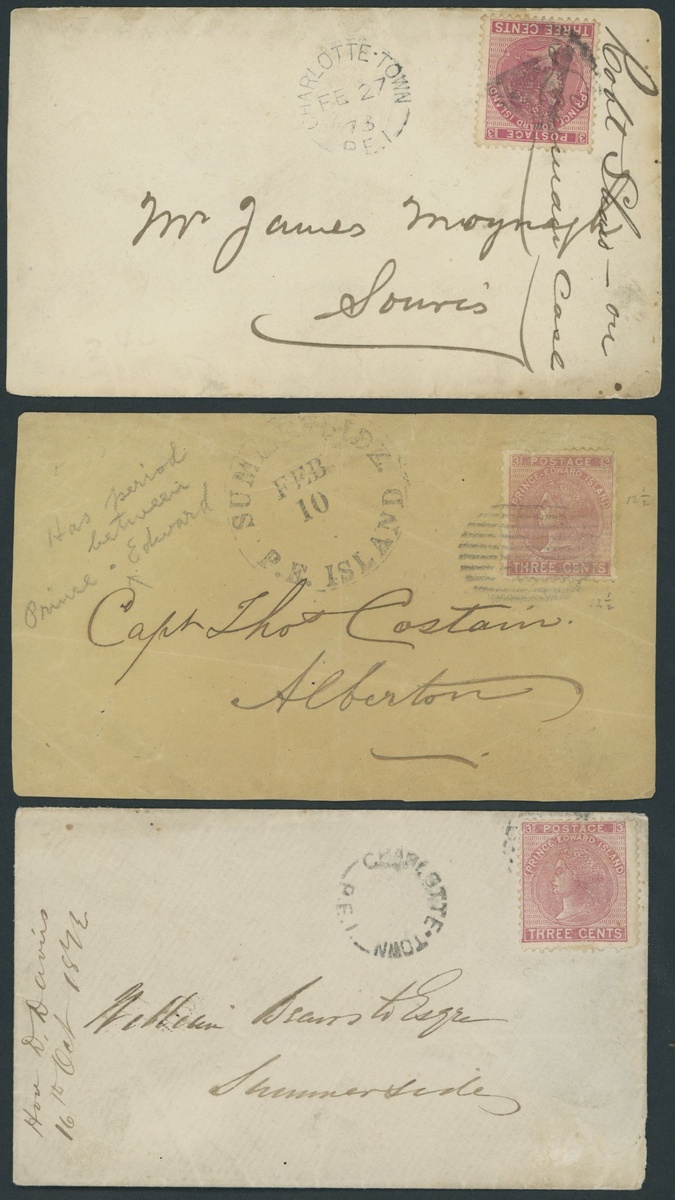 CHARLOTTE-TOWN
FE 27
73
P.E.I.
THREE CENTS
PRINCE EDWARD ISLAND
3 POSTAGE 3
Mr James
Souris
on
Case
SUMMERSIDE.
FEB
10
P.E. ISLAND
Has period
between
Prince . Edward
3 POSTAGE 3
PRINCE EDWARD ISLAND
THREE CENTS
12½
12½
Capt Thos Costain.
Alberton
CHARLOTTE-TOWN
P.E.I.
3 POSTAGE 3
PRINCE EDWARD ISLAND
THREE CENTS
Hon D. Davies
16th Oct 1872
William Esqre
Summerside